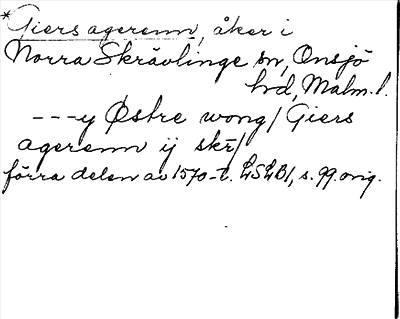 *Giers agerenn, åker i
Norra Skrävlinge sn, Onsjö
hd, Malm. l.
---y Østre wong/ Giers
agerenn ij skr/
förra delen av 1570-t. LSLB1, s. 99. orig.